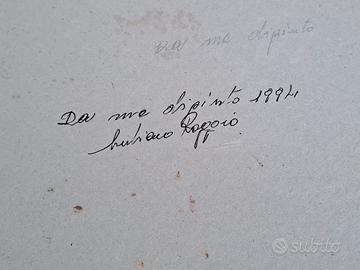 Da me dipinto
Da me dipinto 1994
Luciano Raggio
subito